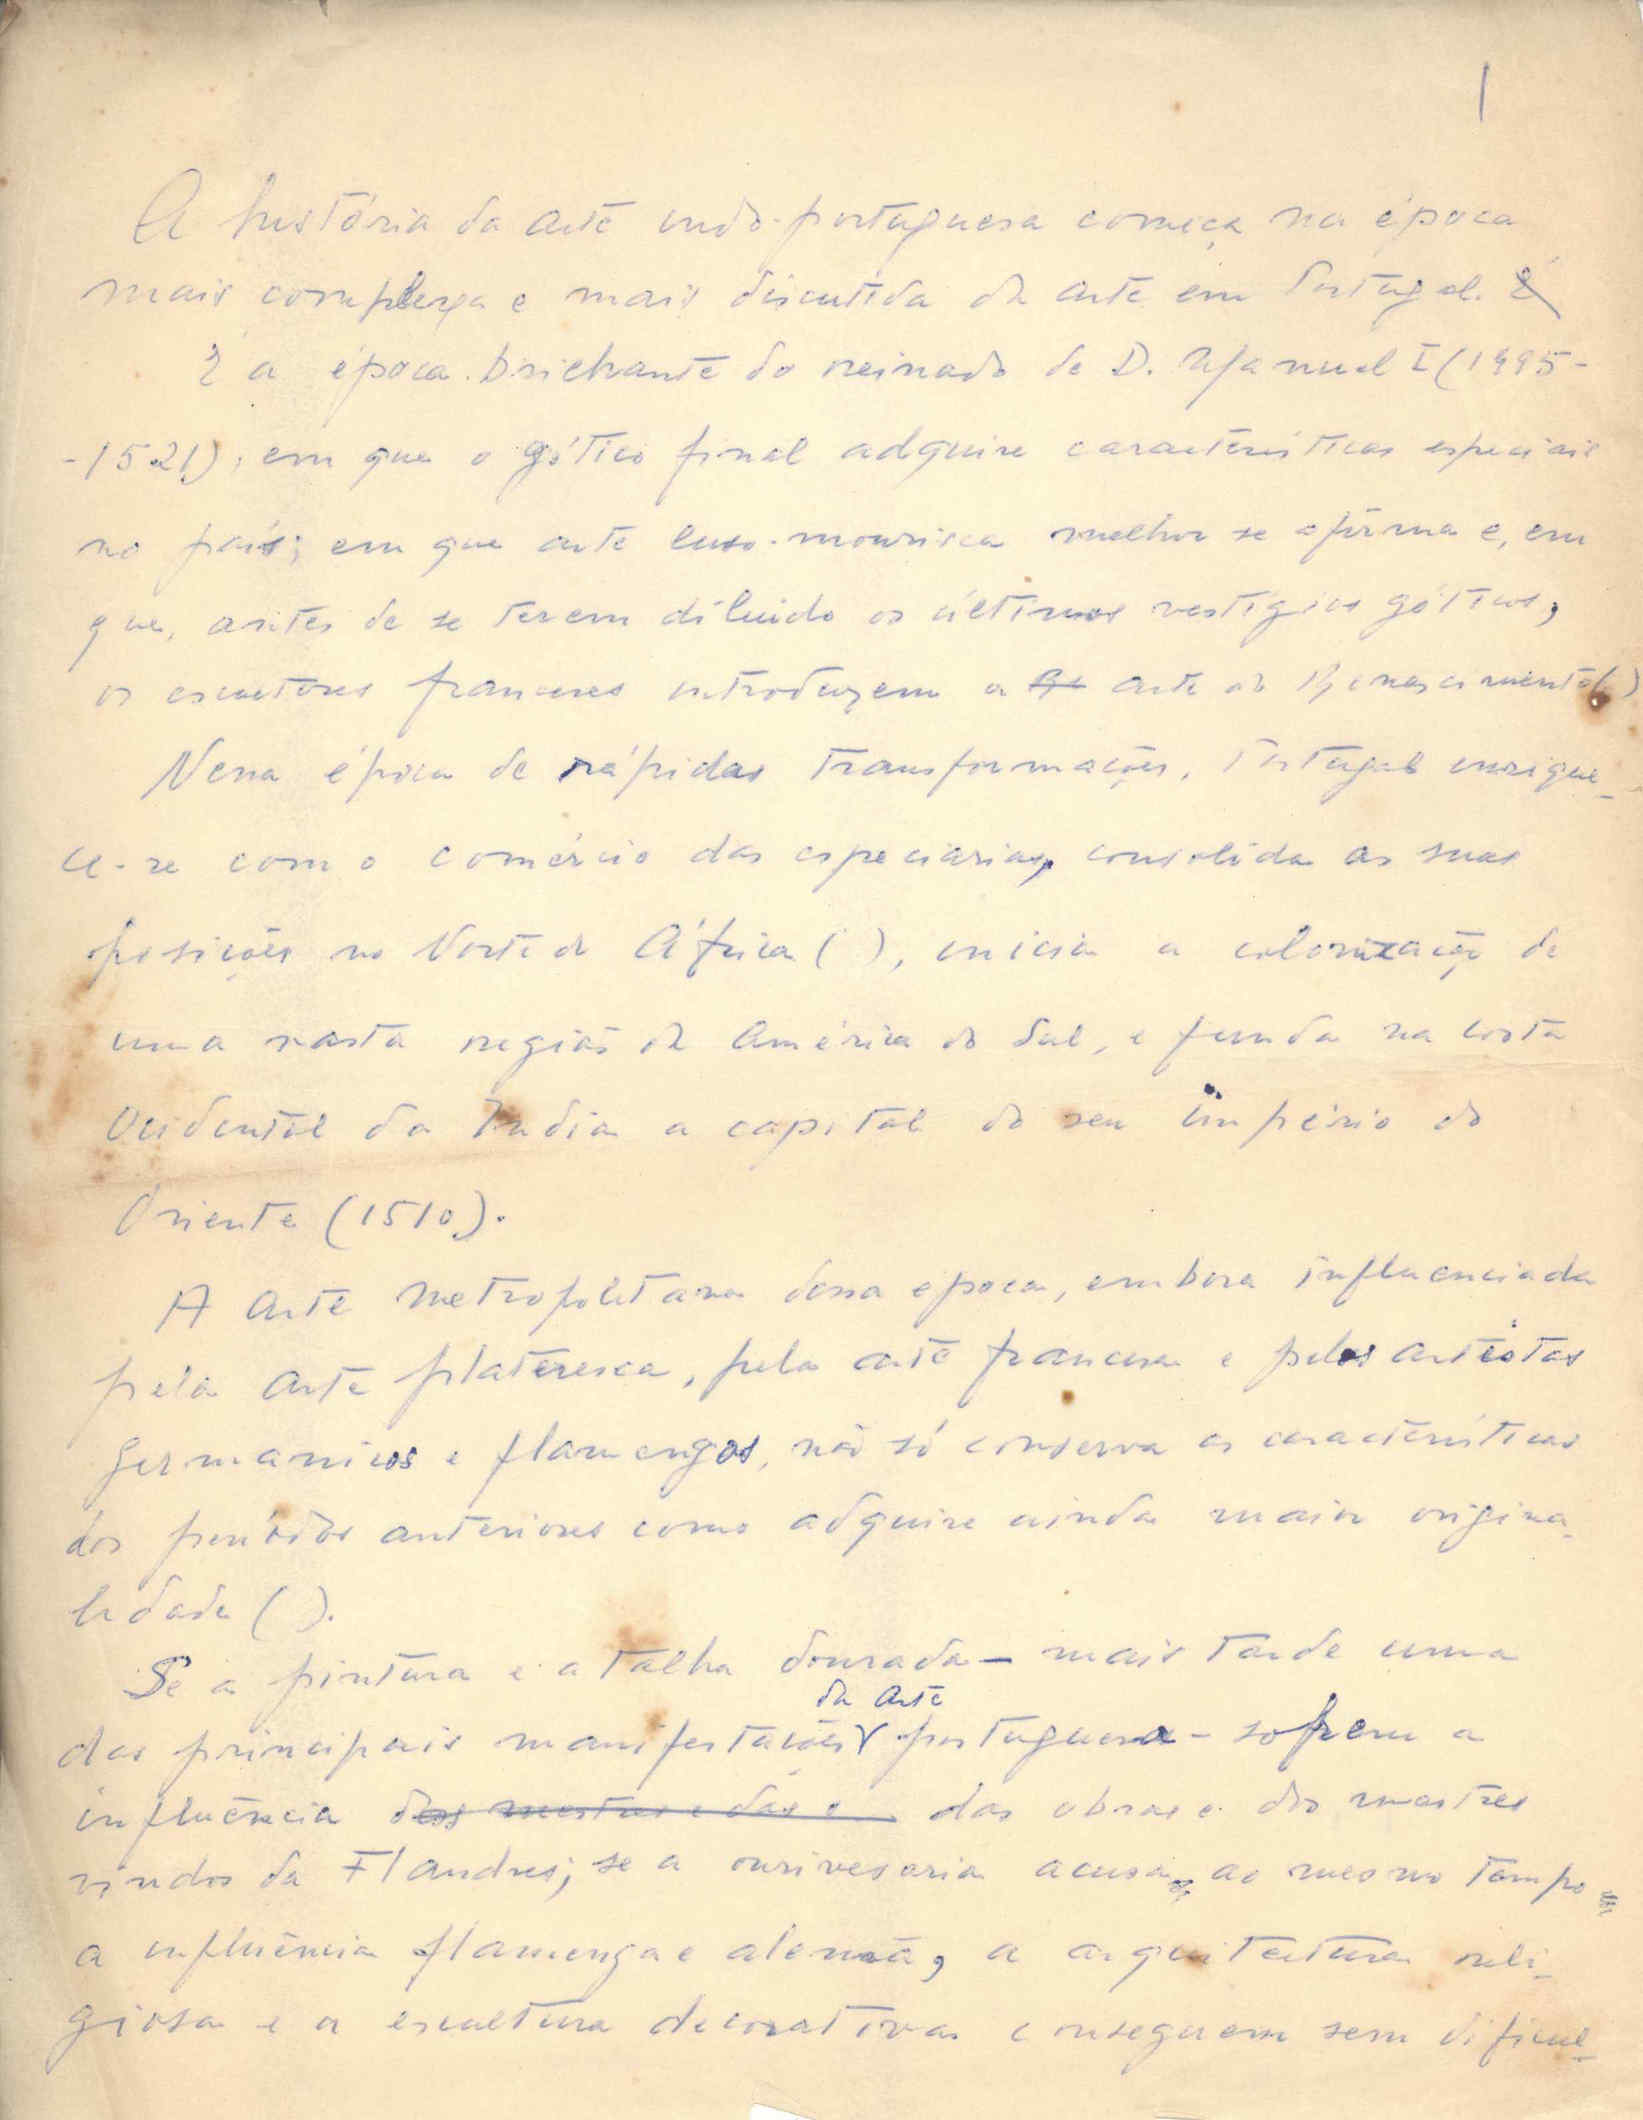 1
A história da arte indo-portuguesa começa na época
mais complexa e mais discutida da arte em Portugal. É
É a época brilhante do reinado de D. Manuel I (1495-
-1521), em que o gótico final adquire características especiais
no país; em que arte luso-mourisca melhor se afirma e, em
que, antes de se terem diluido os últimos vestígios góticos,
os escultores franceses introduzem a Re arte do Renascimento( )
Nessa época de rápidas transformações, Portugal enrique-
ce-se com o comércio das especiarias, consolida as suas
posições no Norte de África ( ), inicia a colonização de
uma vasta região da América do Sul, e funda na costa
Ocidental da India a capital do seu império do
Oriente (1510).
A arte metropolitana dessa epoca, embora influenciada
pela arte plateresca, pela arte francesa e pelos artistas
germanicos e flamengos, não só conserva as características
dos períodos anteriores como adquire ainda maior origina-
lidade ( ).
Se a pintura e a talha dourada — mais tarde uma
da arte
das principais manifestações portuguesa — sofrem a
influência dos mestres e das o das obras e dos mestres
vindos da Flandres; se a ourivesaria acusa, ao mesmo tempo
a influência flamenga e alemã, a arquitectura reli-
giosa e a escultura decorativa conseguem sem dificul-